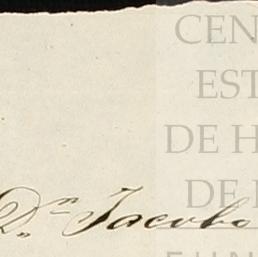 CEN
EST
DE H
DE
Dn Jacobo
FUN